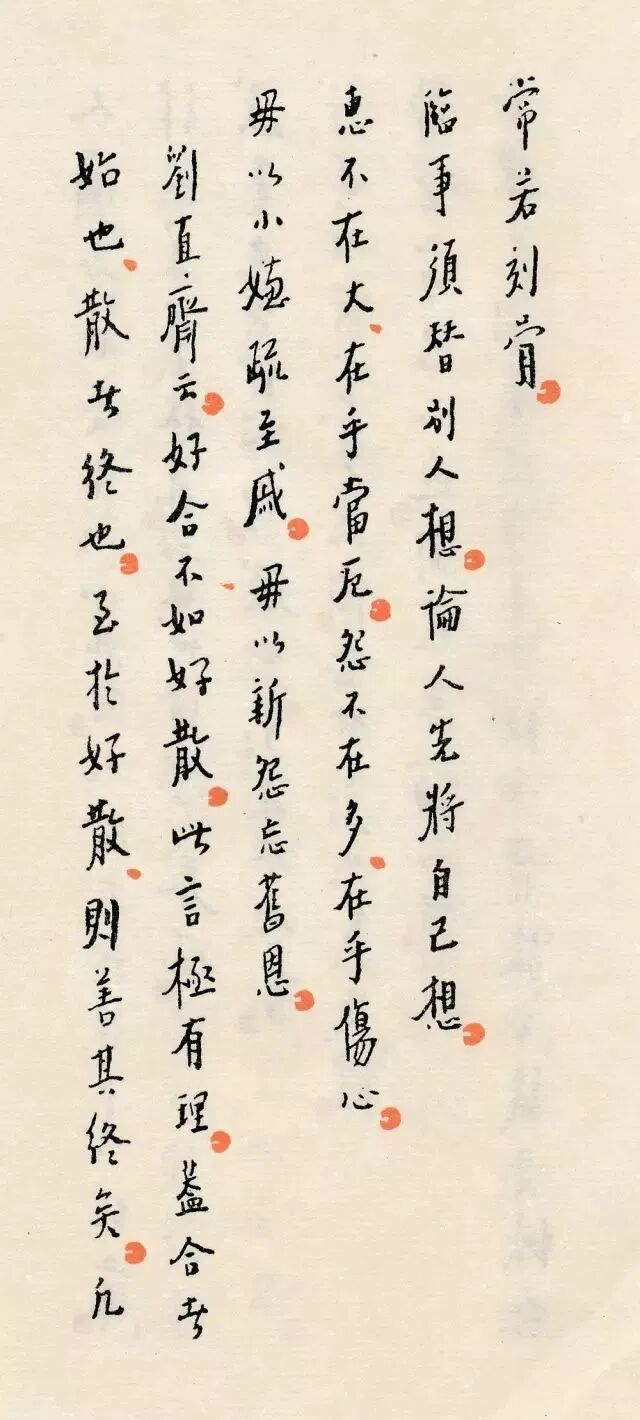 常若刻骨。
臨事須替別人想。論人先將自己想。
惠不在大、在乎當厄。怨不在多、在乎傷心。
毋以小嫌疏至戚。毋以新怨忘舊恩。
劉直齋云。好合、不如好散。此言極有理。蓋合者
始也、散者終也。至於好散、則善其終矣。凡